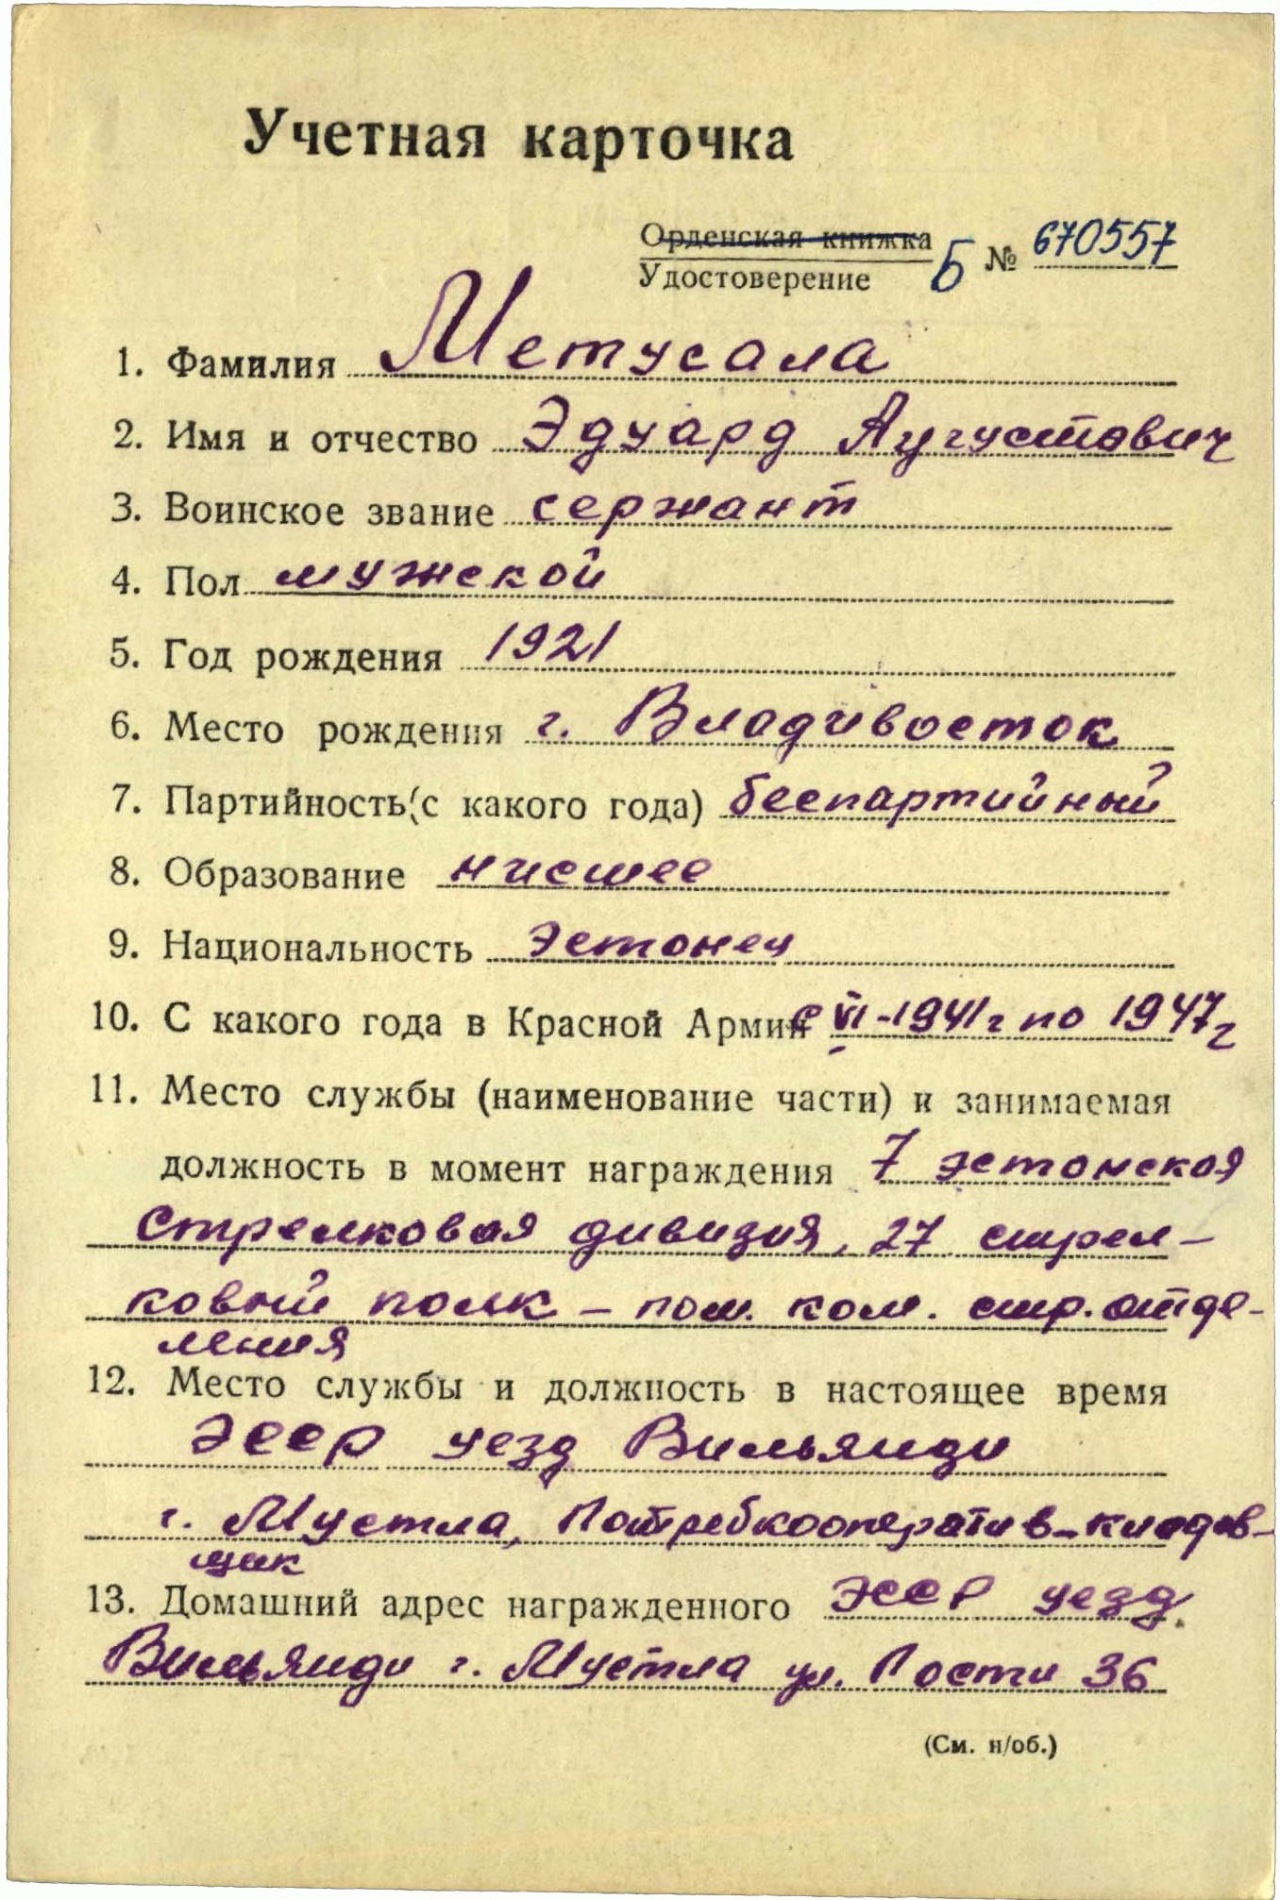 Учетная карточка
Орденская книжка
Удостоверение Б № 670557
1. Фамилия Метусала
2. Имя и отчество Эдуард Аугустович
3. Воинское звание сержант
4. Пол мужской
5. Год рождения 1921
6. Место рождения г. Владивосток
7. Партийность (с какого года) беспартийный
8. Образование нисшее
9. Национальность Эстонец
10. С какого года в Красной Армии с VI-1941г по 1947г
11. Место службы (наименование части) и занимаемая
должность в момент награждения 7 эстонская
стрелковая дивизия, 27 стрел-
ковый полк – пом. ком. стр. отде-
ления
12. Место службы и должность в настоящее время
ЭССР уезд Вильянди
г. Мустла, Потребкооператив-кладов-
щик
13. Домашний адрес награжденного ЭССР уезд
Вильянди г. Мустла ул. Пости 36
(См. н/об.)